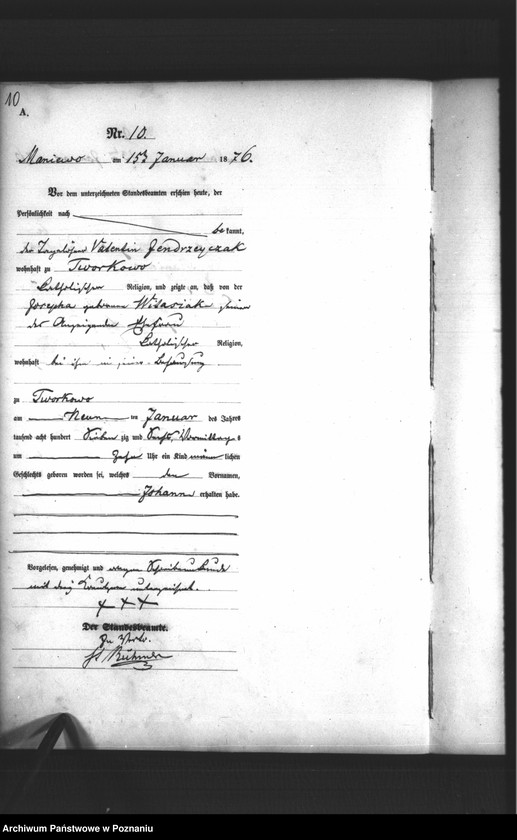 10
A.
Nr. 10.
Maniewo am 15ten Januar 1876.
Vor dem unterzeichneten Standesbeamten erschien heute, der
Persönlichkeit nach
bekannt,
der Tagelöhner Valentin Jendrzeyczak
wohnhaft zu Tworkowo
katholischer Religion, und zeigte an, daß von der
Josepha geborene Witasiak seiner
des Anzeigenden Ehefrau
katholischer Religion,
wohnhaft bei ihm in seiner Behausung
zu Tworkowo
am Neun ten Januar des Jahres
tausend acht hundert Sieben zig und Sechs, Vormittags
um Zehn Uhr ein Kind männlichen
Geschlechts geboren worden sei, welches den Vornamen,
Johann erhalten habe.
Vorgelesen, genehmigt und wegen Schreibunkunde
mit drei Kreuzen unterzeichnet.
+ + +
Der Standesbeamte.
Archiwum Państwowe w Poznaniu